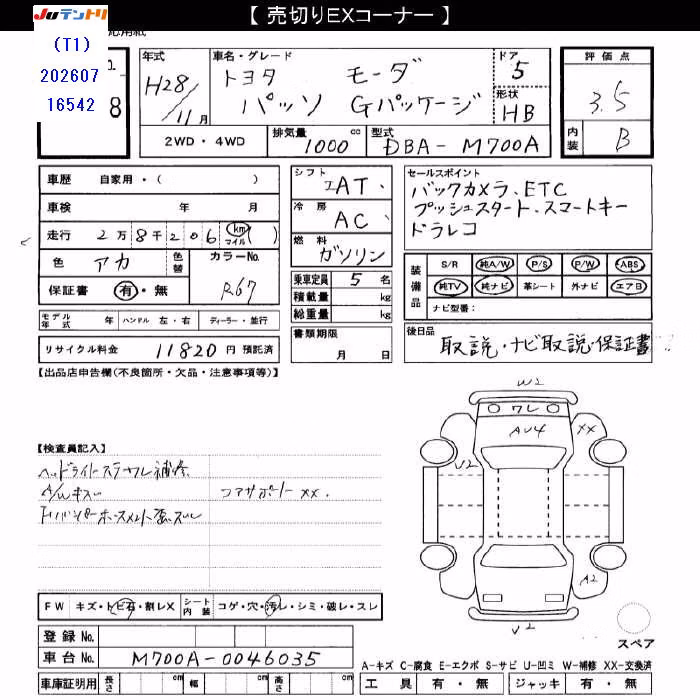 【 売切りEXコーナー 】
JUテントリ
(T1)
202607
16542
8
年式
H28/11月
車名・グレード
トヨタ モーダ
パッソ Gパッケージ
ドア
5
形状
HB
評価点
3.5
内装
B
2WD・4WD
排気量
1000 cc
型式
DBA-M700A
車歴 自家用・( )
車検 年 月
走行 2万8千206 km マイル ( )
色 アカ 色替 カラーNo. R67
保証書 有・無
シフト IAT
冷房 AC
燃料 ガソリン
乗車定員 5名
積載量 kg
総重量 kg
セールスポイント
バックカメラ、ETC
プッシュスタート、スマートキー
ドラレコ
装備品
S/R 純A/W P/S P/W ABS
純TV 純ナビ 革シート 外ナビ エアB
ナビ型番:
モデル年式 年 ハンドル 左・右 ディーラー・並行
リサイクル料金 11820円 預託済
書類期限
月 日
後日品
取説・ナビ取説・保証書
【出品店申告欄(不良箇所・欠品・注意事項等)】
【検査員記入】
A/Wキズ
コアサポート XX.
W2
ワレ
AU4
XX
U2
A2
V2
スペア
FW キズ・トビ石・割レX
シート内装 コゲ・穴・汚レ・シミ・破レ・スレ
登録No.
車台No. M700A-0046035
車庫証明用 長さ cm 幅 cm 高さ cm
A-キズ C-腐食 E-エクボ S-サビ U-凹ミ W-補修 XX-交換済
工具 有・無 ジャッキ 有・無